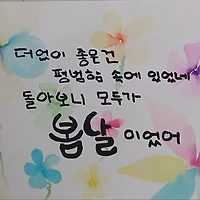 더없이 좋은건
평범함 속에 있었네
돌아보니 모두가
봄날이었어